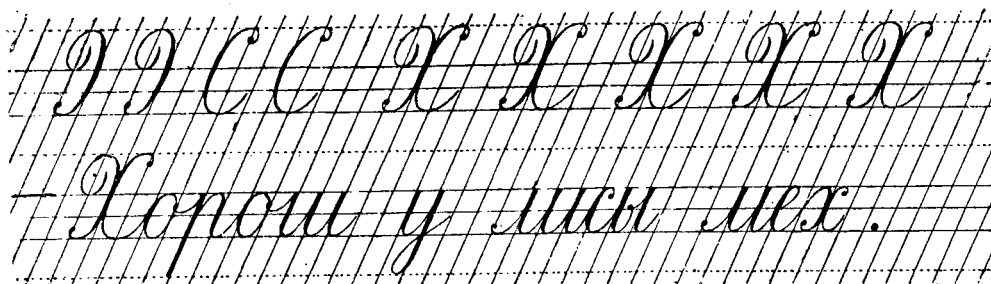 С С Х Х Х Х Х
Хорош у лисы мех.